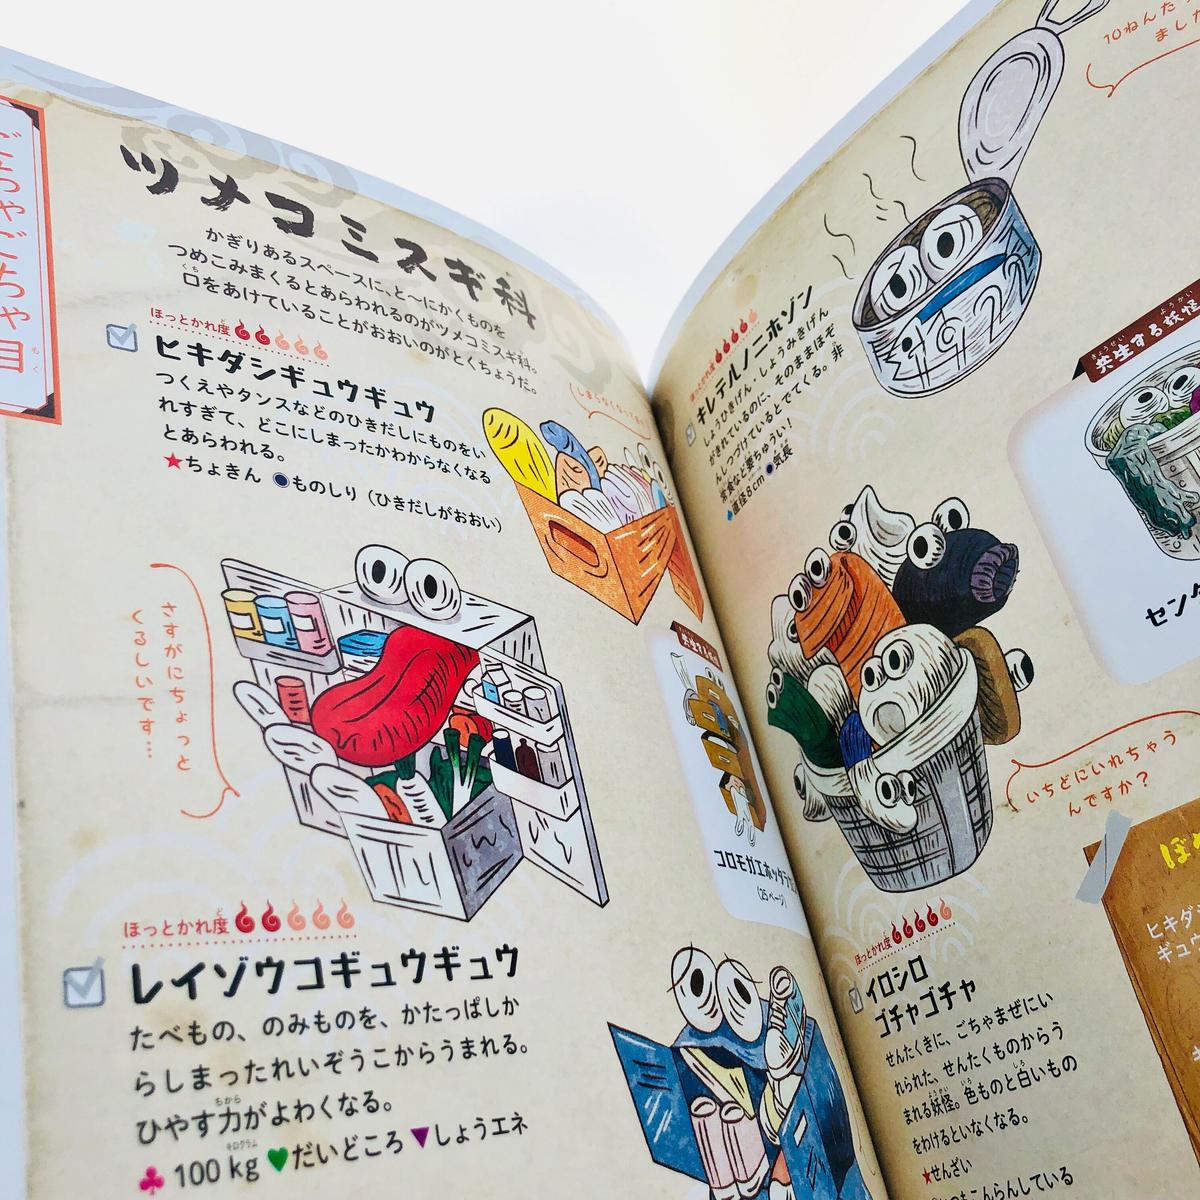 ごちゃごちゃ目
もく
ツメコミスギ科
かぎりあるスペースに、と〜にかくものを
つめこみまくるとあらわれるのがツメコミスギ科。
口をあけていることがおおいのがとくちょうだ。
くち
ほっとかれ度
ど
ヒキダシギュウギュウ
つくえやタンスなどのひきだしにものをい
れすぎて、どこにしまったかわからなくなる
とあらわれる。
★ちょきん ●ものしり（ひきだしがおおい）
さすがにちょっと
くるしいです…
共生する妖怪
コロモガエホッタラ
（25ページ）
ほっとかれ度
ど
レイゾウコギュウギュウ
たべもの、のみものを、かたっぱしか
らしまったれいぞうこからうまれる。
ひやす力がよわくなる。
ちから
キログラム
♣100kg ♥だいどころ ▼しょうエネ
10ねんた
ました
1922
ほっとかれ度
キレテルノニホゾン
しょうひきげん、しょうみきげん
がきれているのに、そのままほぞ
んしつづけているとでてくる。非
常食など要ちゅうい！
◆直径8cm ●気長
共生する妖怪
きょうせい
ようかい
センタ
いちどにいれちゃう
んですか？
ほっとかれ度
イロシロ
ゴチャゴチャ
せんたくきに、ごちゃまぜにい
れられた、せんたくものからう
まれる妖怪。色ものと白いもの
ようかい
いろ
しろ
をわけるといなくなる。
★せんざい
ヒキダシ
ギュウ